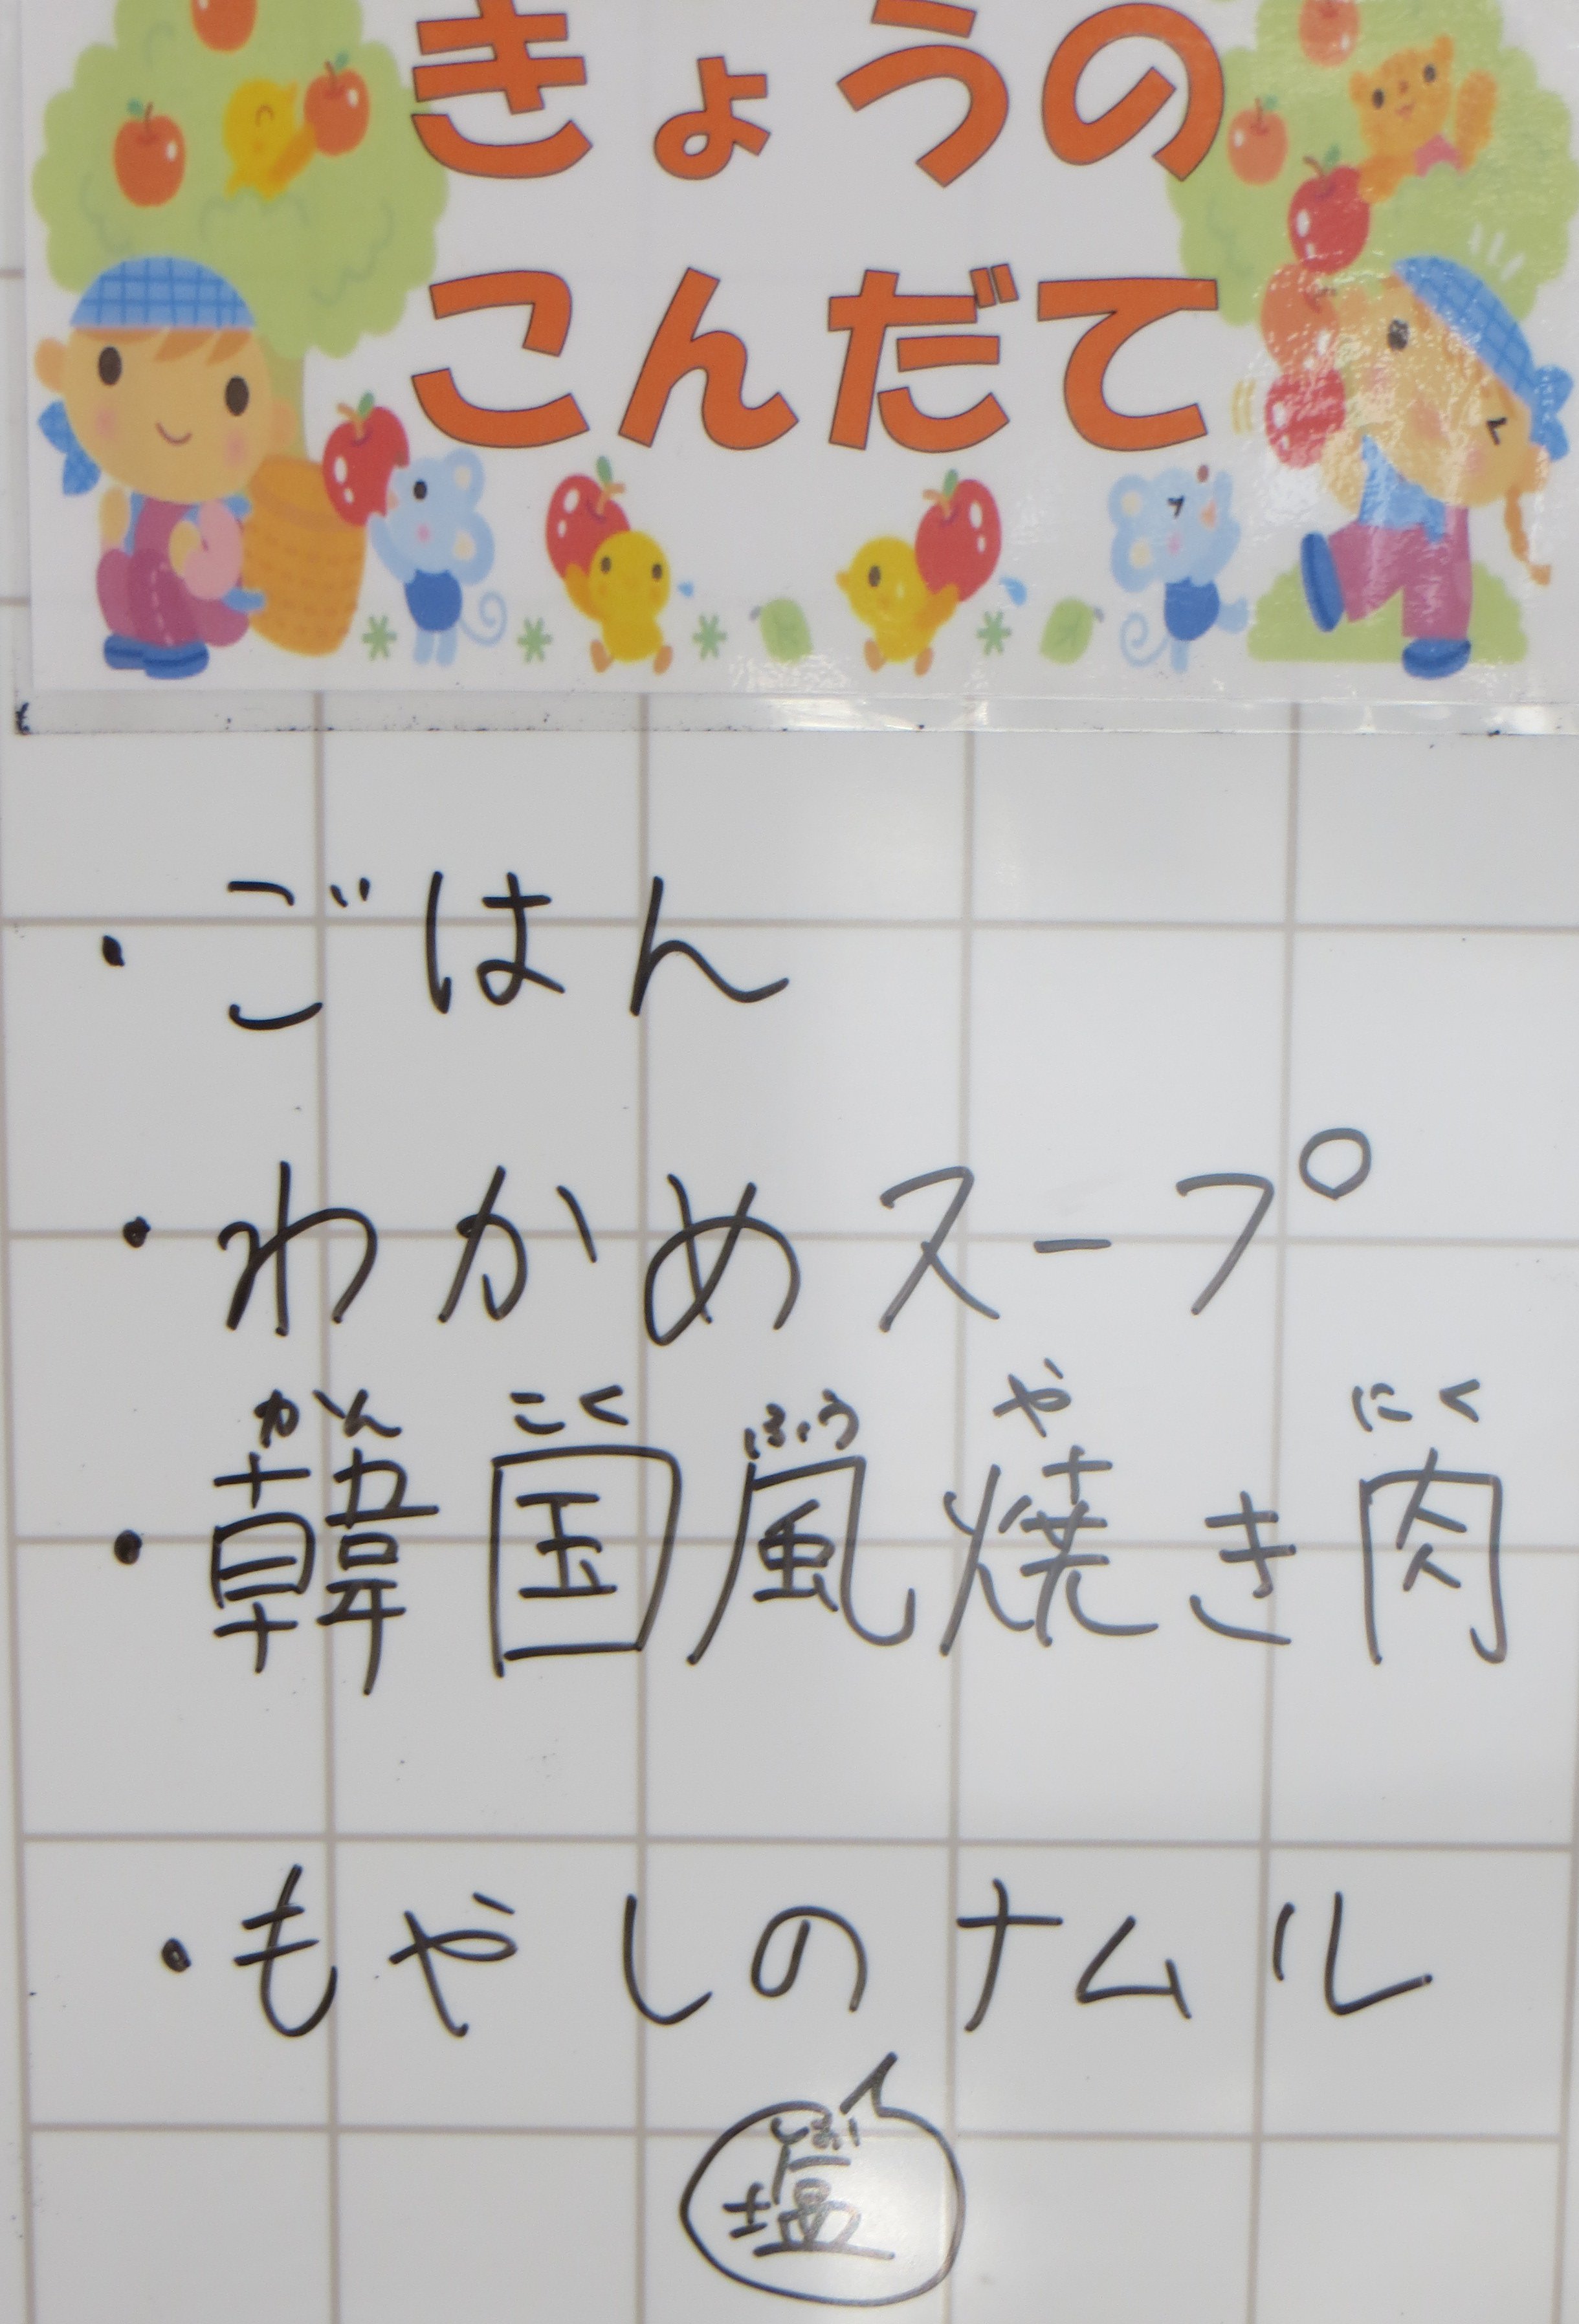 きょうの
こんだて
・ごはん
・わかめスープ
かん こく ふう や にく
・韓国風焼き肉
・もやしのナムル
しお
塩